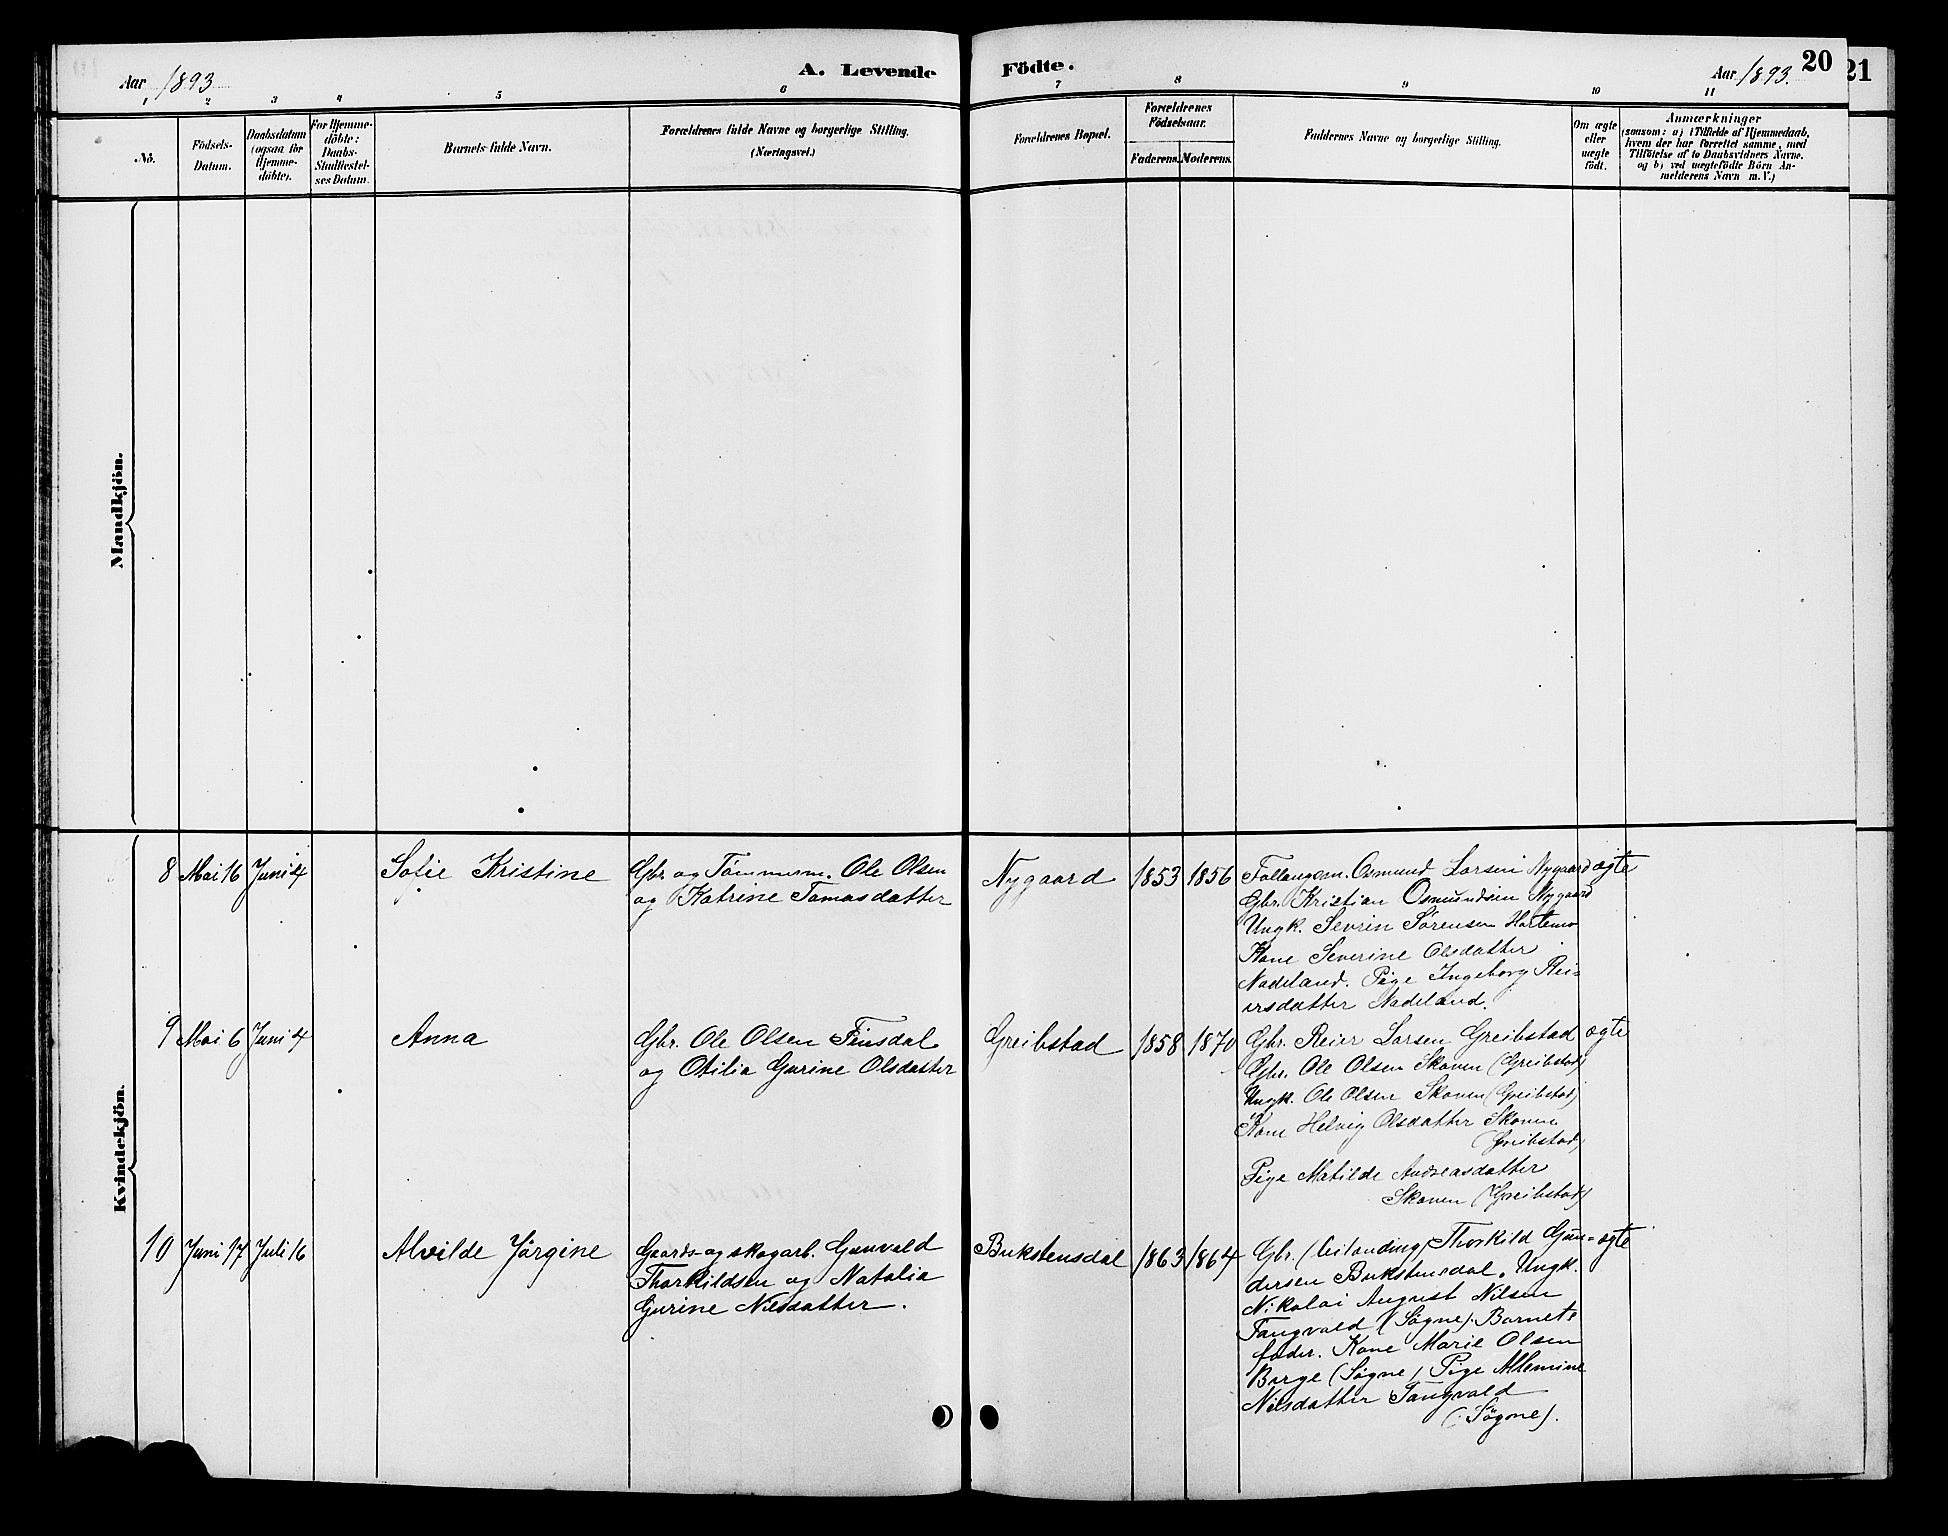 Aar 1893
A. Levende
Födte.
Aar 1893.
20
21
1 2 3 4 5 6 7 8 9 10 11
No.
Födsels-
Datum.
Daabsdatum
(ogsaa for
Hjemme-
döbte).
For Hjemme-
döbte:
Daabs-
Stadfæstel-
ses Datum.
Barnets fulde Navn.
Forældrenes fulde Navne og borgerlige Stilling.
(Næringsvei.)
Forældrenes Bopæl.
Forældrenes
Födselsaar.
Faderens. Moderens.
Faddernes Navne og borgerlige Stilling.
Om ægte
eller
uægte
födt.
Anmærkninger
(saasom: a) i Tilfælde af Hjemmedaab,
hvem der har forrettet samme, med
Tilföielse af to Daabsvidners Navne.
og b) ved uægtefödte Börn An-
melderens Navn m. V.)
Mandkjön.
Kvindekjön.
8 Mai 16 Juni 4
Sofie Kristine
Gbr. og Tömmerm. Ole Olsen
og Katrine Tomasdatter
Nygaard
1853 1856
Follaugsm. Osmund Larsen Nygaard
Gbr. Kristian Osmundsen Nygaard
Ungk. Sevrin Sørensen Hortemo
Kone Severine Olsdatter
Nadeland. Pige Ingeborg Rei-
ersdatter Nadeland.
ægte
9 Mai 6 Juni 4
Anna
Gbr. Ole Olsen Finsdal
og Otilia Gurine Olsdatter
Greibstad
1858 1870
Gbr. Reier Larsen Greibstad
Gbr. Ole Olsen Skoven (Greibstad)
Ungk. Ole Olsen Skoven (Greibstad)
Kone Helvig Olsdatter Skoven
(Greibstad)
Pige Matilde Andreasdatter
Skoven (Greibstad)
ægte
10 Juni 17 Juli 16
Alvilde Jørgine
Gaards- og skogarb. Gunvald
Thorkildsen og Natalia
Gurine Nilsdatter.
Bukstensdal
1863 1864
Gbr. Thorkild Gun-
dersen Bukstensdal. Ungk.
Nikolai August Nilsen
Tangvald (Søgne). Barnets
fader. Kone Marie Olsen
Borge (Søgne) Pige Allemine
Nilsdatter Tangvald
(Søgne).
ægte